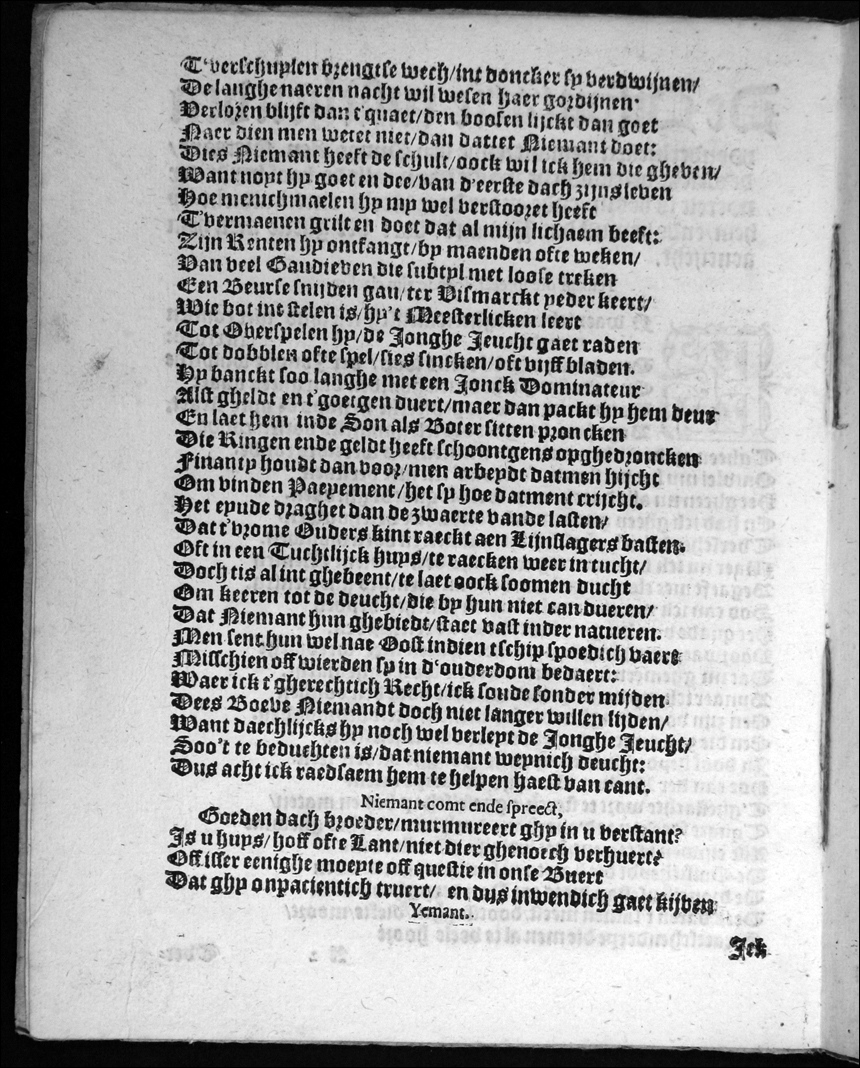 T'verschuylen brengtse wech/int doncker sy verdwijnen/
De langhe naeren nacht wil wesen haer gordijnen·
Verloren blijft dan t'quaet/den boosen lijckt dan goet
Naer dien men wetet niet/dan dattet Niemant doet:
Dies Niemant heeft de schult/oock wil ick hem die gheven/
Want noyt hy goet en dee/van d'eerste dach zijns leven
Hoe menichmaelen hy my wel verstooret heeft
T'vermaenen grilt en doet dat al mijn lichaem beeft:
Zijn Renten hy ontfangt/by maenden ofte weken/
Van veel Gaudieven die subtyl met loose treken
Een Beurse snijden gau/ter Vismarckt yeder keert/
Wie bot int stelen is/hy't Meesterlicken leert
Tot Overspelen hy/de Jonghe Jeucht gaet raden
Tot dobblen ofte spel/sies sincken/oft vijff bladen.
Hy banckt soo langhe met een Jonck Dominateur
Alst gheldt en t'goetgen duert/maer dan packt hy hem deur
En laet hem inde Son als Boter sitten proncken
Die Ringen ende geldt heeft schoontgens opghedroncken
Finanty houdt dan voor/men arbeydt datmen hijcht
Om vinden Paeyement/het sy hoe datment crijcht.
Het eynde draghet dan de zwaerte vande lasten/
Dat t'vrome Ouders kint raeckt aen Lijnslagers basten.
Oft in een Tuchtlijck huys/te raecken weer in tucht/
Doch tis al int ghebeent/te laet oock soomen ducht
Om keeren tot de deucht/die by hun niet can dueren/
Dat Niemant hun ghebiedt/staet vast inder natueren.
Men sent hun wel nae Oost indien tschip spoedich vaert
Misschien off wierden sy in d'ouderdom bedaert:
Waer ick t'gherechtich Recht/ick soude sonder mijden
Dees Boeve Niemandt doch niet langer willen lijden/
Want daechlijcks hy noch wel verleyt de Jonghe Jeucht/
Soo't te beduchten is/dat niemant weynich deucht:
Dus acht ick raedsaem hem te helpen haest van cant.
Niemant comt ende spreect,
Goeden dach broeder/murmureert ghy in u verstant?
Is u huys/hoff ofte Lant/niet dier ghenoech verhuert?
Off isser eenighe moeyte off questie in onse Buert
Dat ghy onpacientich truert/ en dus inwendich gaet kijven
Yemant.
Ick